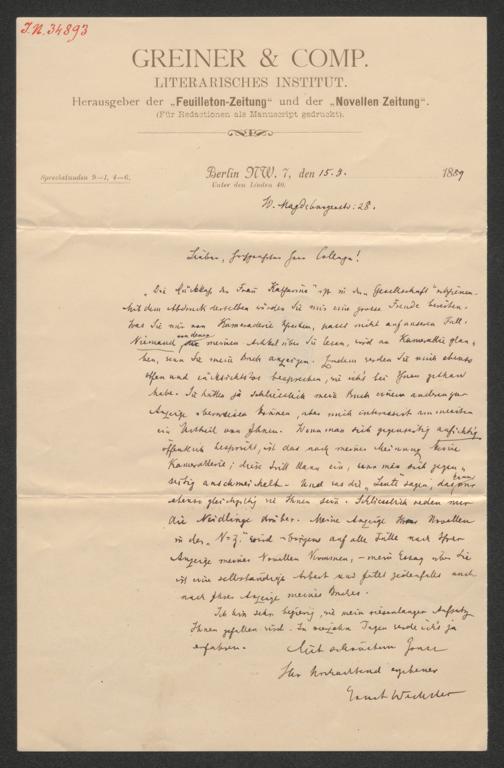 J.N. 34893
GREINER & COMP.
LITERARISCHES INSTITUT.
Herausgeber der „Feuilleton-Zeitung“ und der „Novellen Zeitung“.
(Für Redactionen als Manuscript gedruckt).
Sprechstunden 9–1, 4–6.
Berlin NW. 7, den 15.3. 1889
Unter den Linden 40.
W. Magdeburgerstr. 28.
Lieber, Herr College!
„Die Rückkehr der Frau Katharina“ ist in der „Gesellschaft“ erschienen.
Mit dem Abdruck derselben würden Sie mir eine grosse Freude bereiten.
Was Sie mir von Kameraderie schreiben, passt nicht auf unseren Fall.
Niemand, meinen Artikel über Sie lesen, wird an Kameraderie glau-
ben, wenn Sie mein Buch anzeigen. Zudem werden Sie mich ebenso
offen und rücksichtslos besprechen, wie ich's bei Ihnen gethan
habe. Sie hätten ja schliesslich mein Buch einem anderen zur
Anzeige überweisen können, aber mich interessirt am meisten
ein Urtheil von Ihnen. Wenn man sich gegenseitig aufrichtig
öffentlich bespricht, ist das nach meiner Meinung keine
Kameraderie; diese tritt dann ein, wenn man sich gegen-
seitig anschmeichelt. Und was die „Leute“ sagen, das kann
ebenso gleichgiltig wie Ihnen sein. Schliesslich reden nur
die Neidlinge drüber. Meine Anzeige Ihrer Novellen
in der „N.Z.“ wird übrigens auf alle Fälle nach Ihrer
Anzeige meiner Novellen kommen, – mein Essay über Sie
ist eine selbständige Arbeit und fällt jedenfalls auch
nach Ihrer Anzeige meines Buches.
Ich bin sehr begierig, wie mein riesenlanger Aufsatz
Ihnen gefallen wird. In vierzehn Tagen werde ich's ja
erfahren.
Mit Gruss
Ihr hochachtend ergebener
Ernst Wechsler